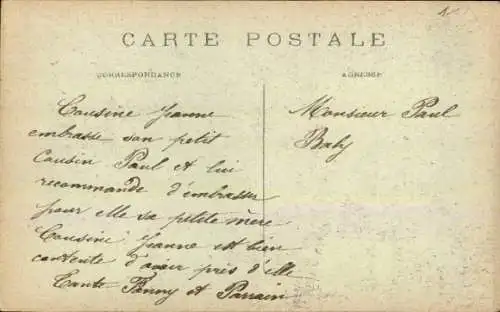 CARTE POSTALE
CORRESPONDANCE
ADRESSE
Cousine Jeanne
embrasse son petit
Cousin Paul et lui
recommande d'embrasser
pour elle sa petite mère
Cousine Jeanne est bien
contente d'avoir près d'elle
Tante Fanny et Parrain
Monsieur Paul
Baly